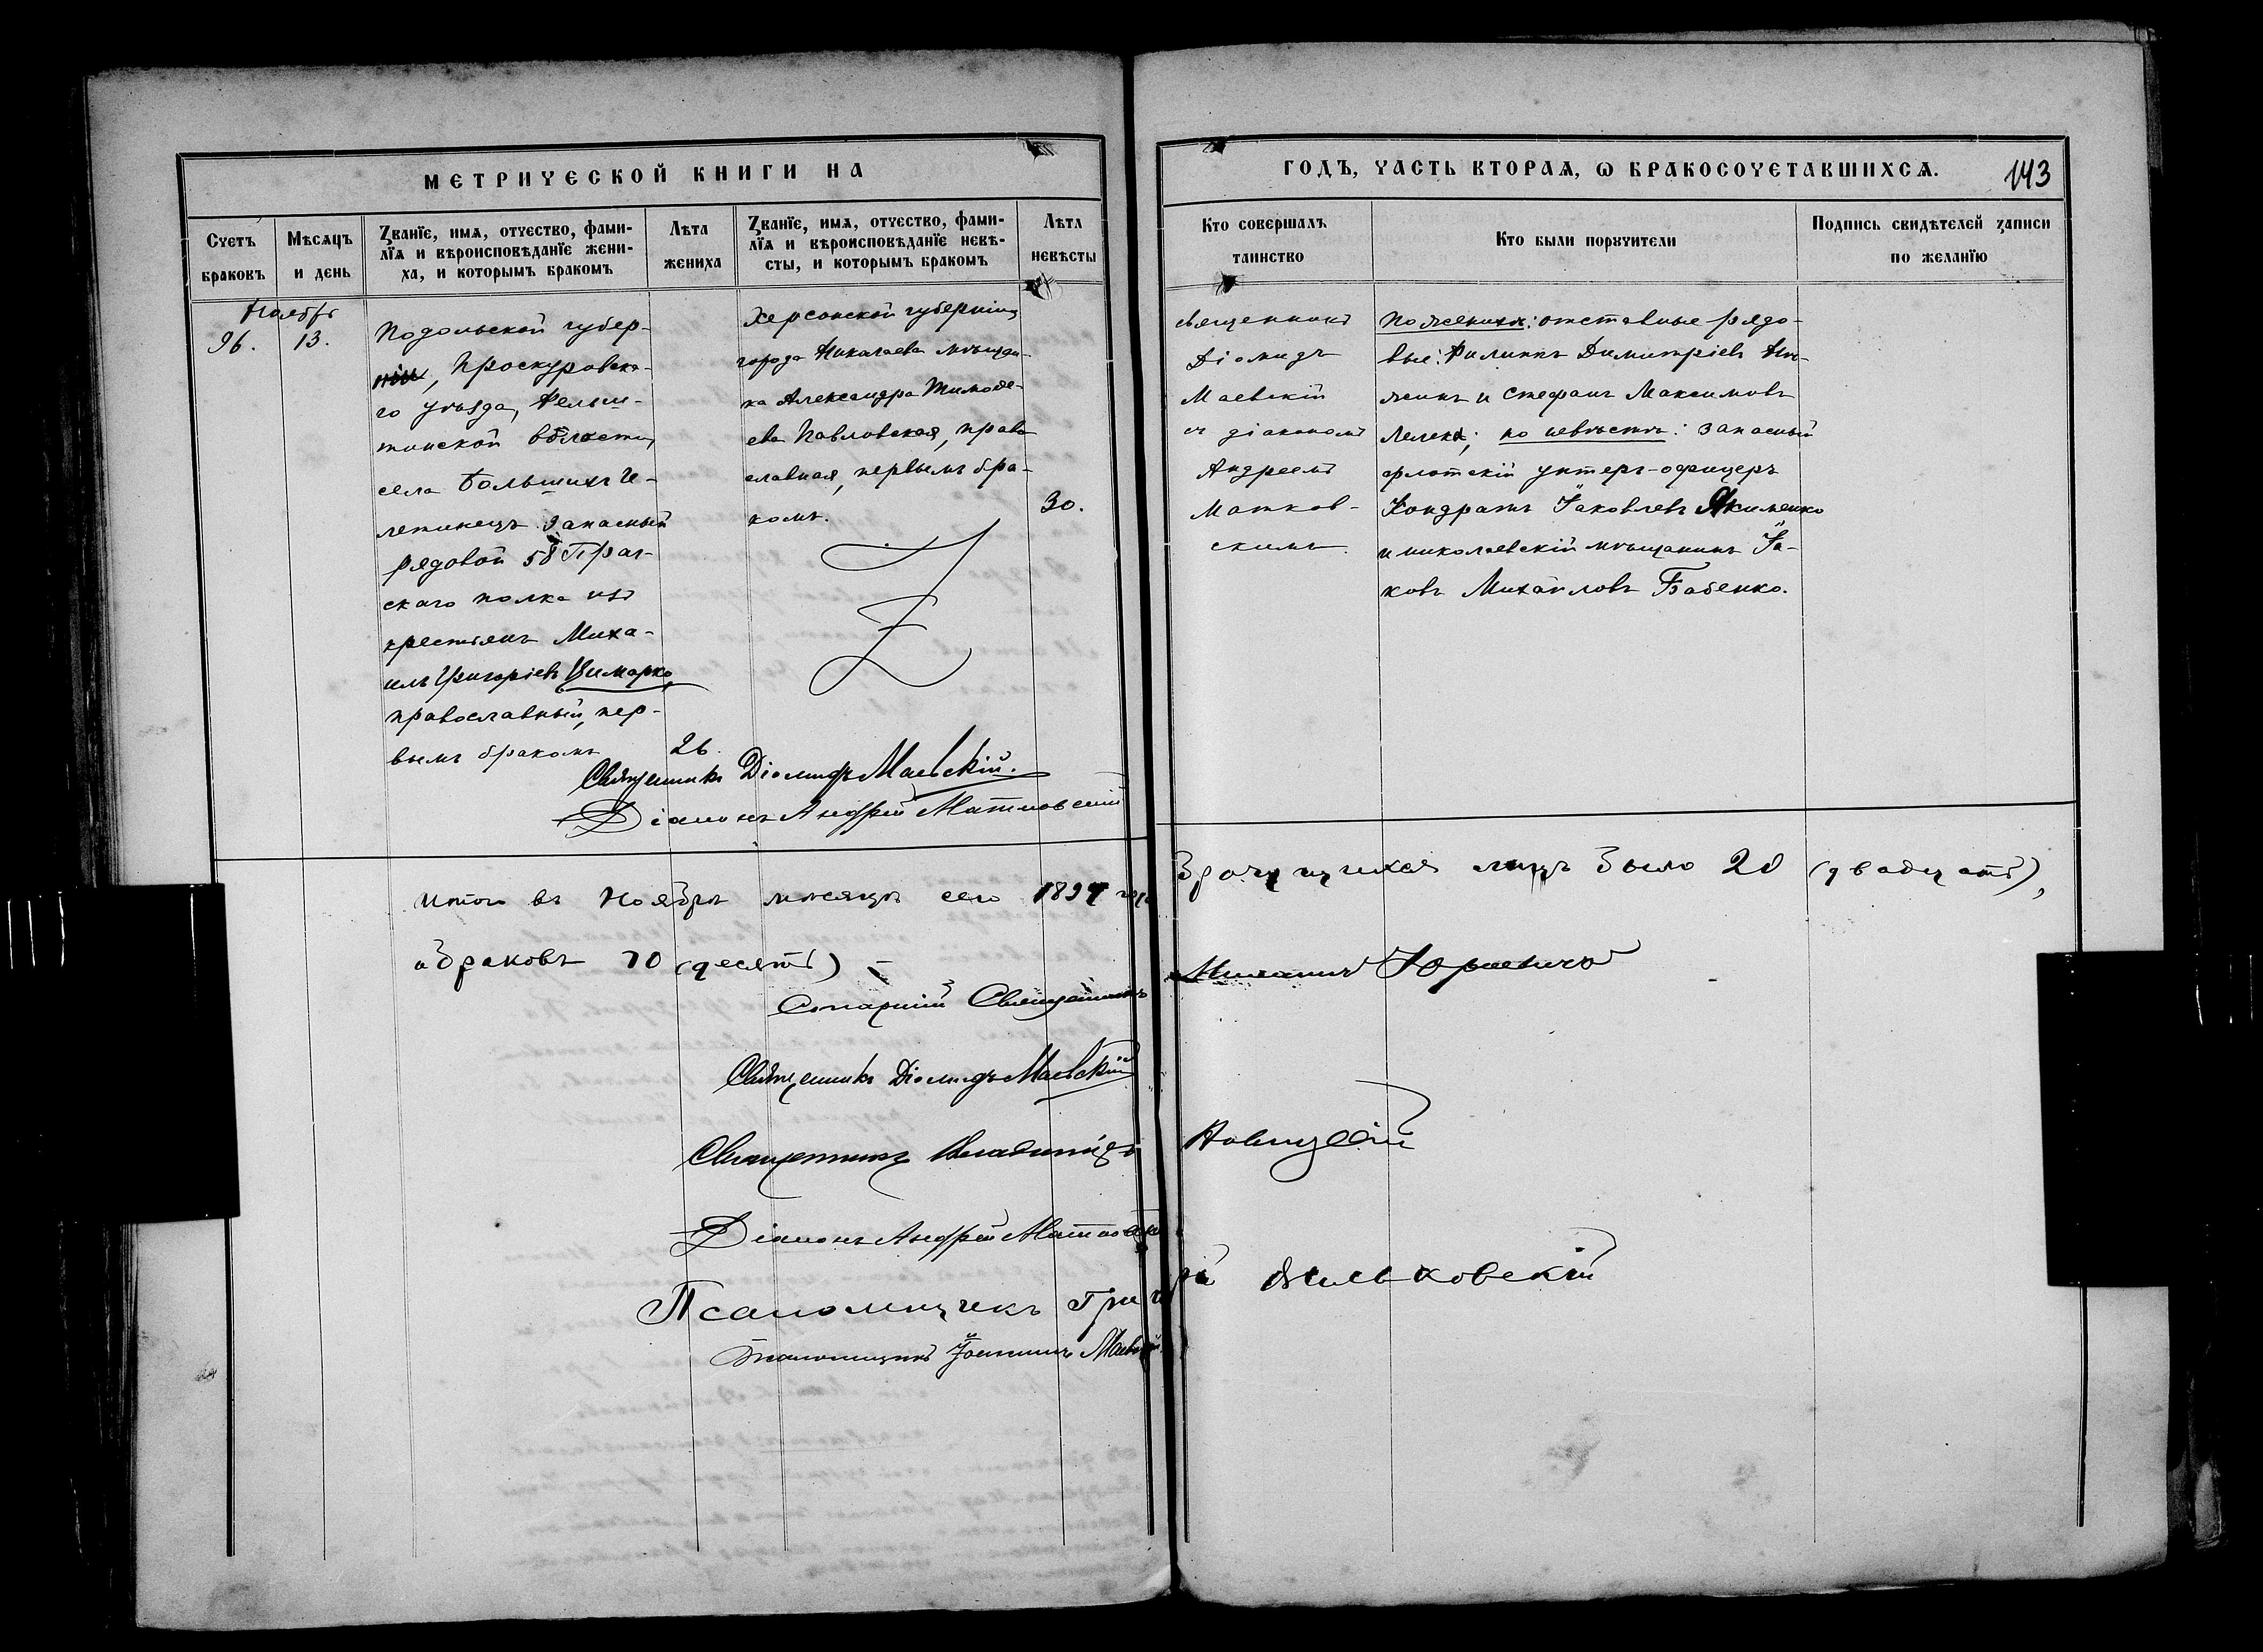 МЕТРИЧЕСКОЙ КНИГИ НА
ГОДЪ, ЧАСТЬ ВТОРАѦ, Ѡ БРАКОСОЧЕТАВШИХСѦ.
143
Счетъ браковъ
Мѣсѧцъ и день
Званїе, имѧ, отчество, фами-
лїѧ и вѣроисповѣданїе жени-
ха, и которымъ бракомъ
Лѣта жениха
Званїе, имѧ, отчество, фами-
лїѧ и вѣроисповѣданїе невѣ-
сты, и которымъ бракомъ
Лѣта невѣсты
Кто совершалъ таинство
Кто были порꙋчители
Подпись свидѣтелей записи
по желанїю
Ноябрь
96.
13.
Подольской губер-
ніи, Проскуровска-
го уѣзда, Фельш-
тинской волости,
села Большихъ Че-
лепинецъ запасный
рядовой 58 Праг-
скаго полка изъ
крестьянъ Миха-
илъ Григоріевъ Цимарко,
православный, пер-
вымъ бракомъ
26.
Херсонской губерніи,
города Николаева мѣщан-
ка Александра Тимофе-
ева Павловская, право
славная, первымъ бра-
комъ.
30.
Священникъ
Діомидъ
Маевскій
съ діакономъ
Андреемъ
Матков-
скимъ.
По женихѣ: отставные рядо-
вые: Филиппъ Димитріевъ
и Стефанъ Максимовъ
Лелека; по невѣстѣ: запасный
флотскій унтеръ-офицеръ
Кондратъ Іаковлевъ Якименко
и николаевскій мѣщанинъ Іа-
ковъ Михайловъ Бабенко.
Священникъ Діомидъ Маевскій.
Діаконъ Андрей Матковскій
Итого въ Ноябрѣ мѣсяцѣ сего 1897 года
браковъ 10 (десять) –
брачущихся лицъ было 20 (двадцать),
Старшій Священникъ Михаилъ Юрьевичъ
Священникъ Діомидъ Маевскій
Священникъ Владиміръ Новицкій
Діаконъ Андрей Матковскій
Псаломщикъ Григорій Вильховскій
Псаломщикъ Іоаннъ Маевскій